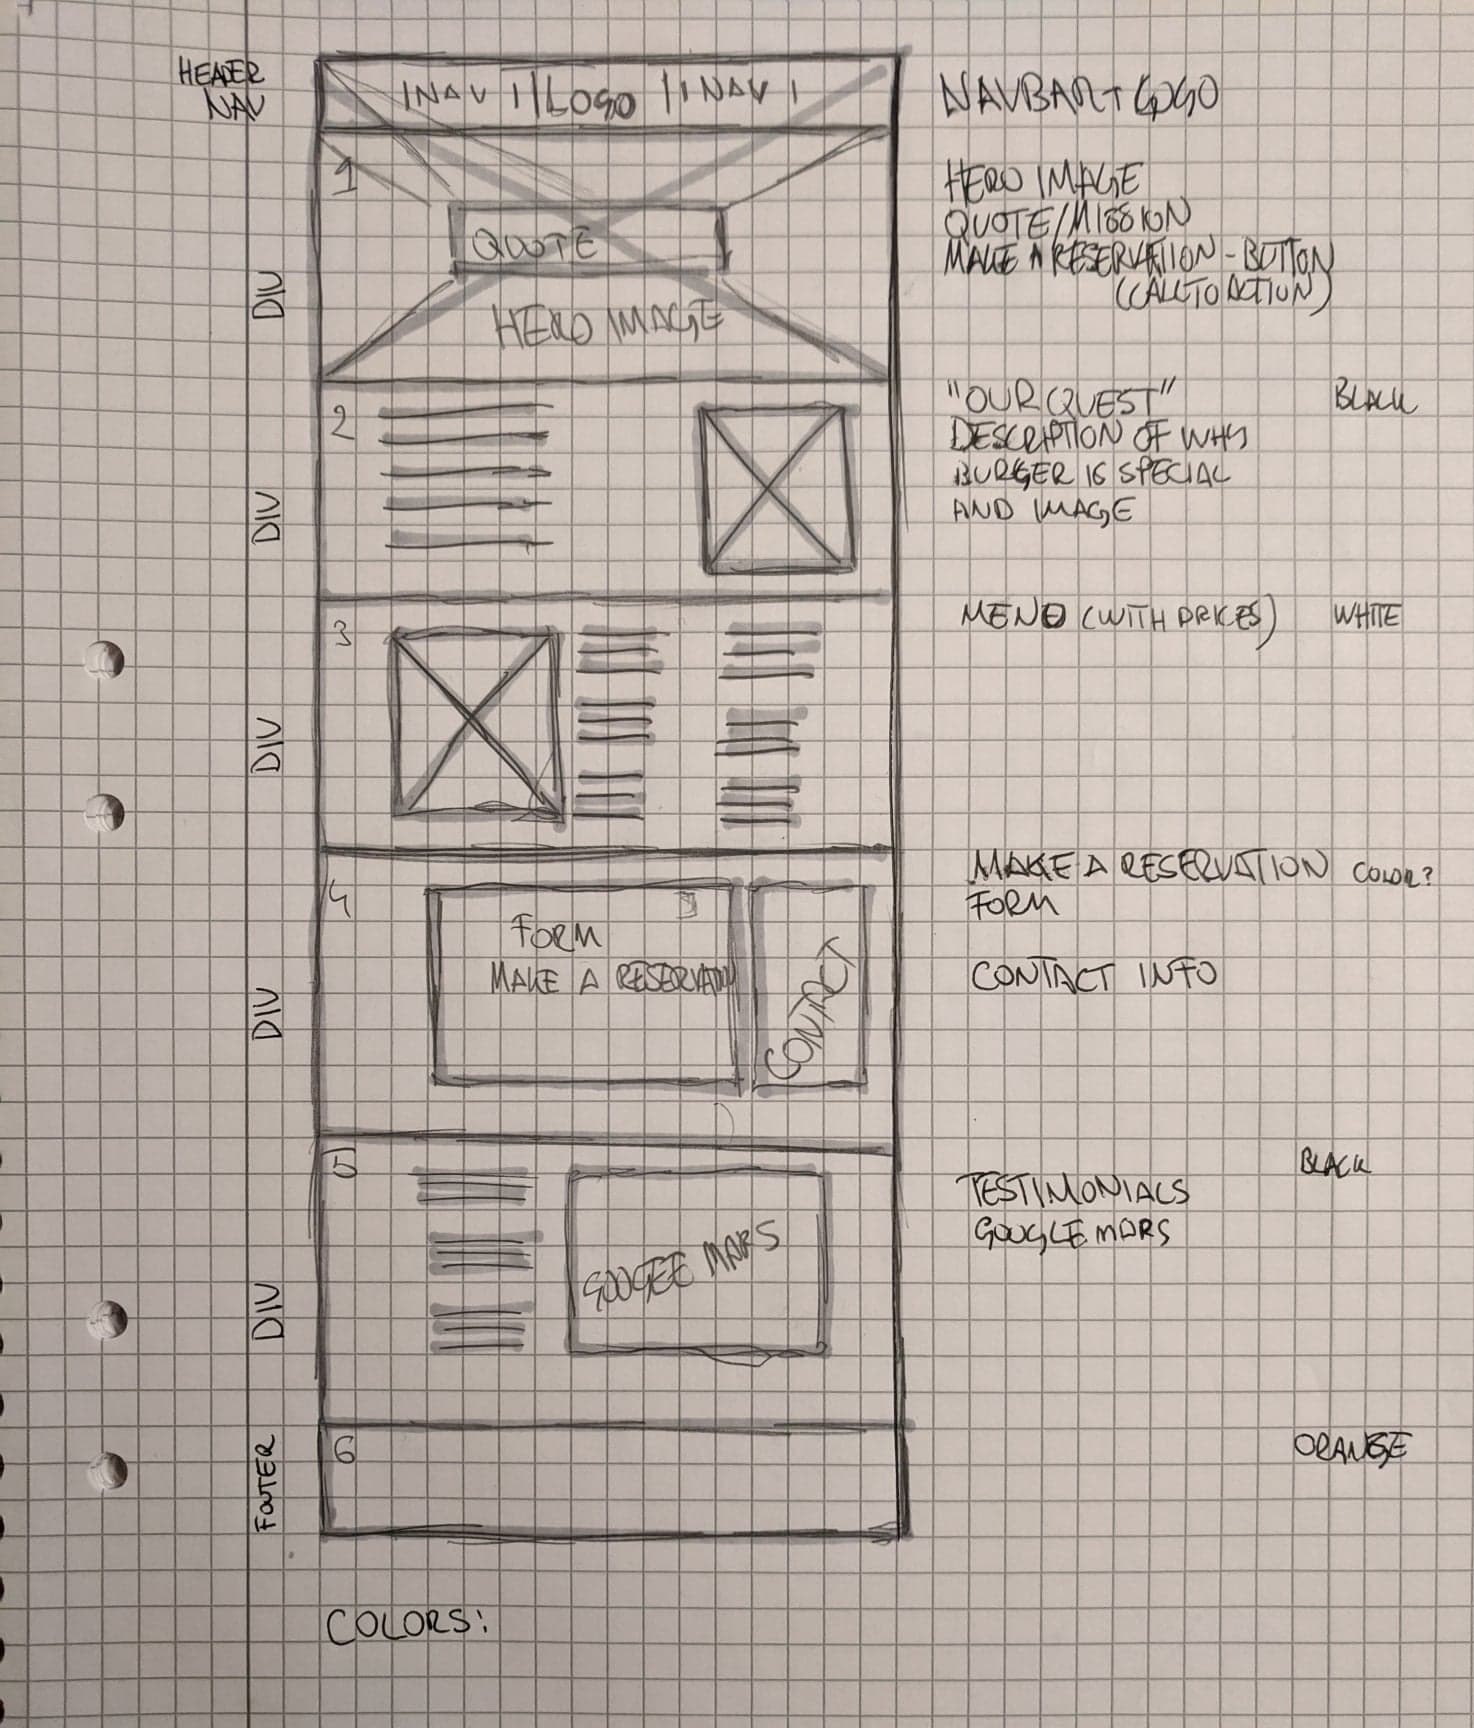 HEADER
NAV
| NAV | | LOGO | | NAV |
NAVBAR + LOGO
1
QUOTE
HERO IMAGE
DIV
HERO IMAGE
QUOTE/MISSION
MAKE A RESERVATION - BUTTON
(CALL TO ACTION)
2
DIV
"OUR QUEST"
BLACK
DESCRIPTION OF WHY
BURGER IS SPECIAL
AND IMAGE
3
DIV
MENU (WITH PRICES)
WHITE
4
FORM
MAKE A RESERVATION
CONTACT
DIV
MAKE A RESERVATION
COLOR?
FORM
CONTACT INFO
5
GOOGLE MAPS
DIV
BLACK
TESTIMONIALS
GOOGLE MAPS
6
FOOTER
ORANGE
COLORS: